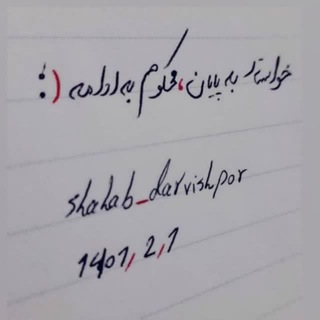 خواستار به پایان، محکوم به ادامه :)
shahab_darvishpor
1401,2,1